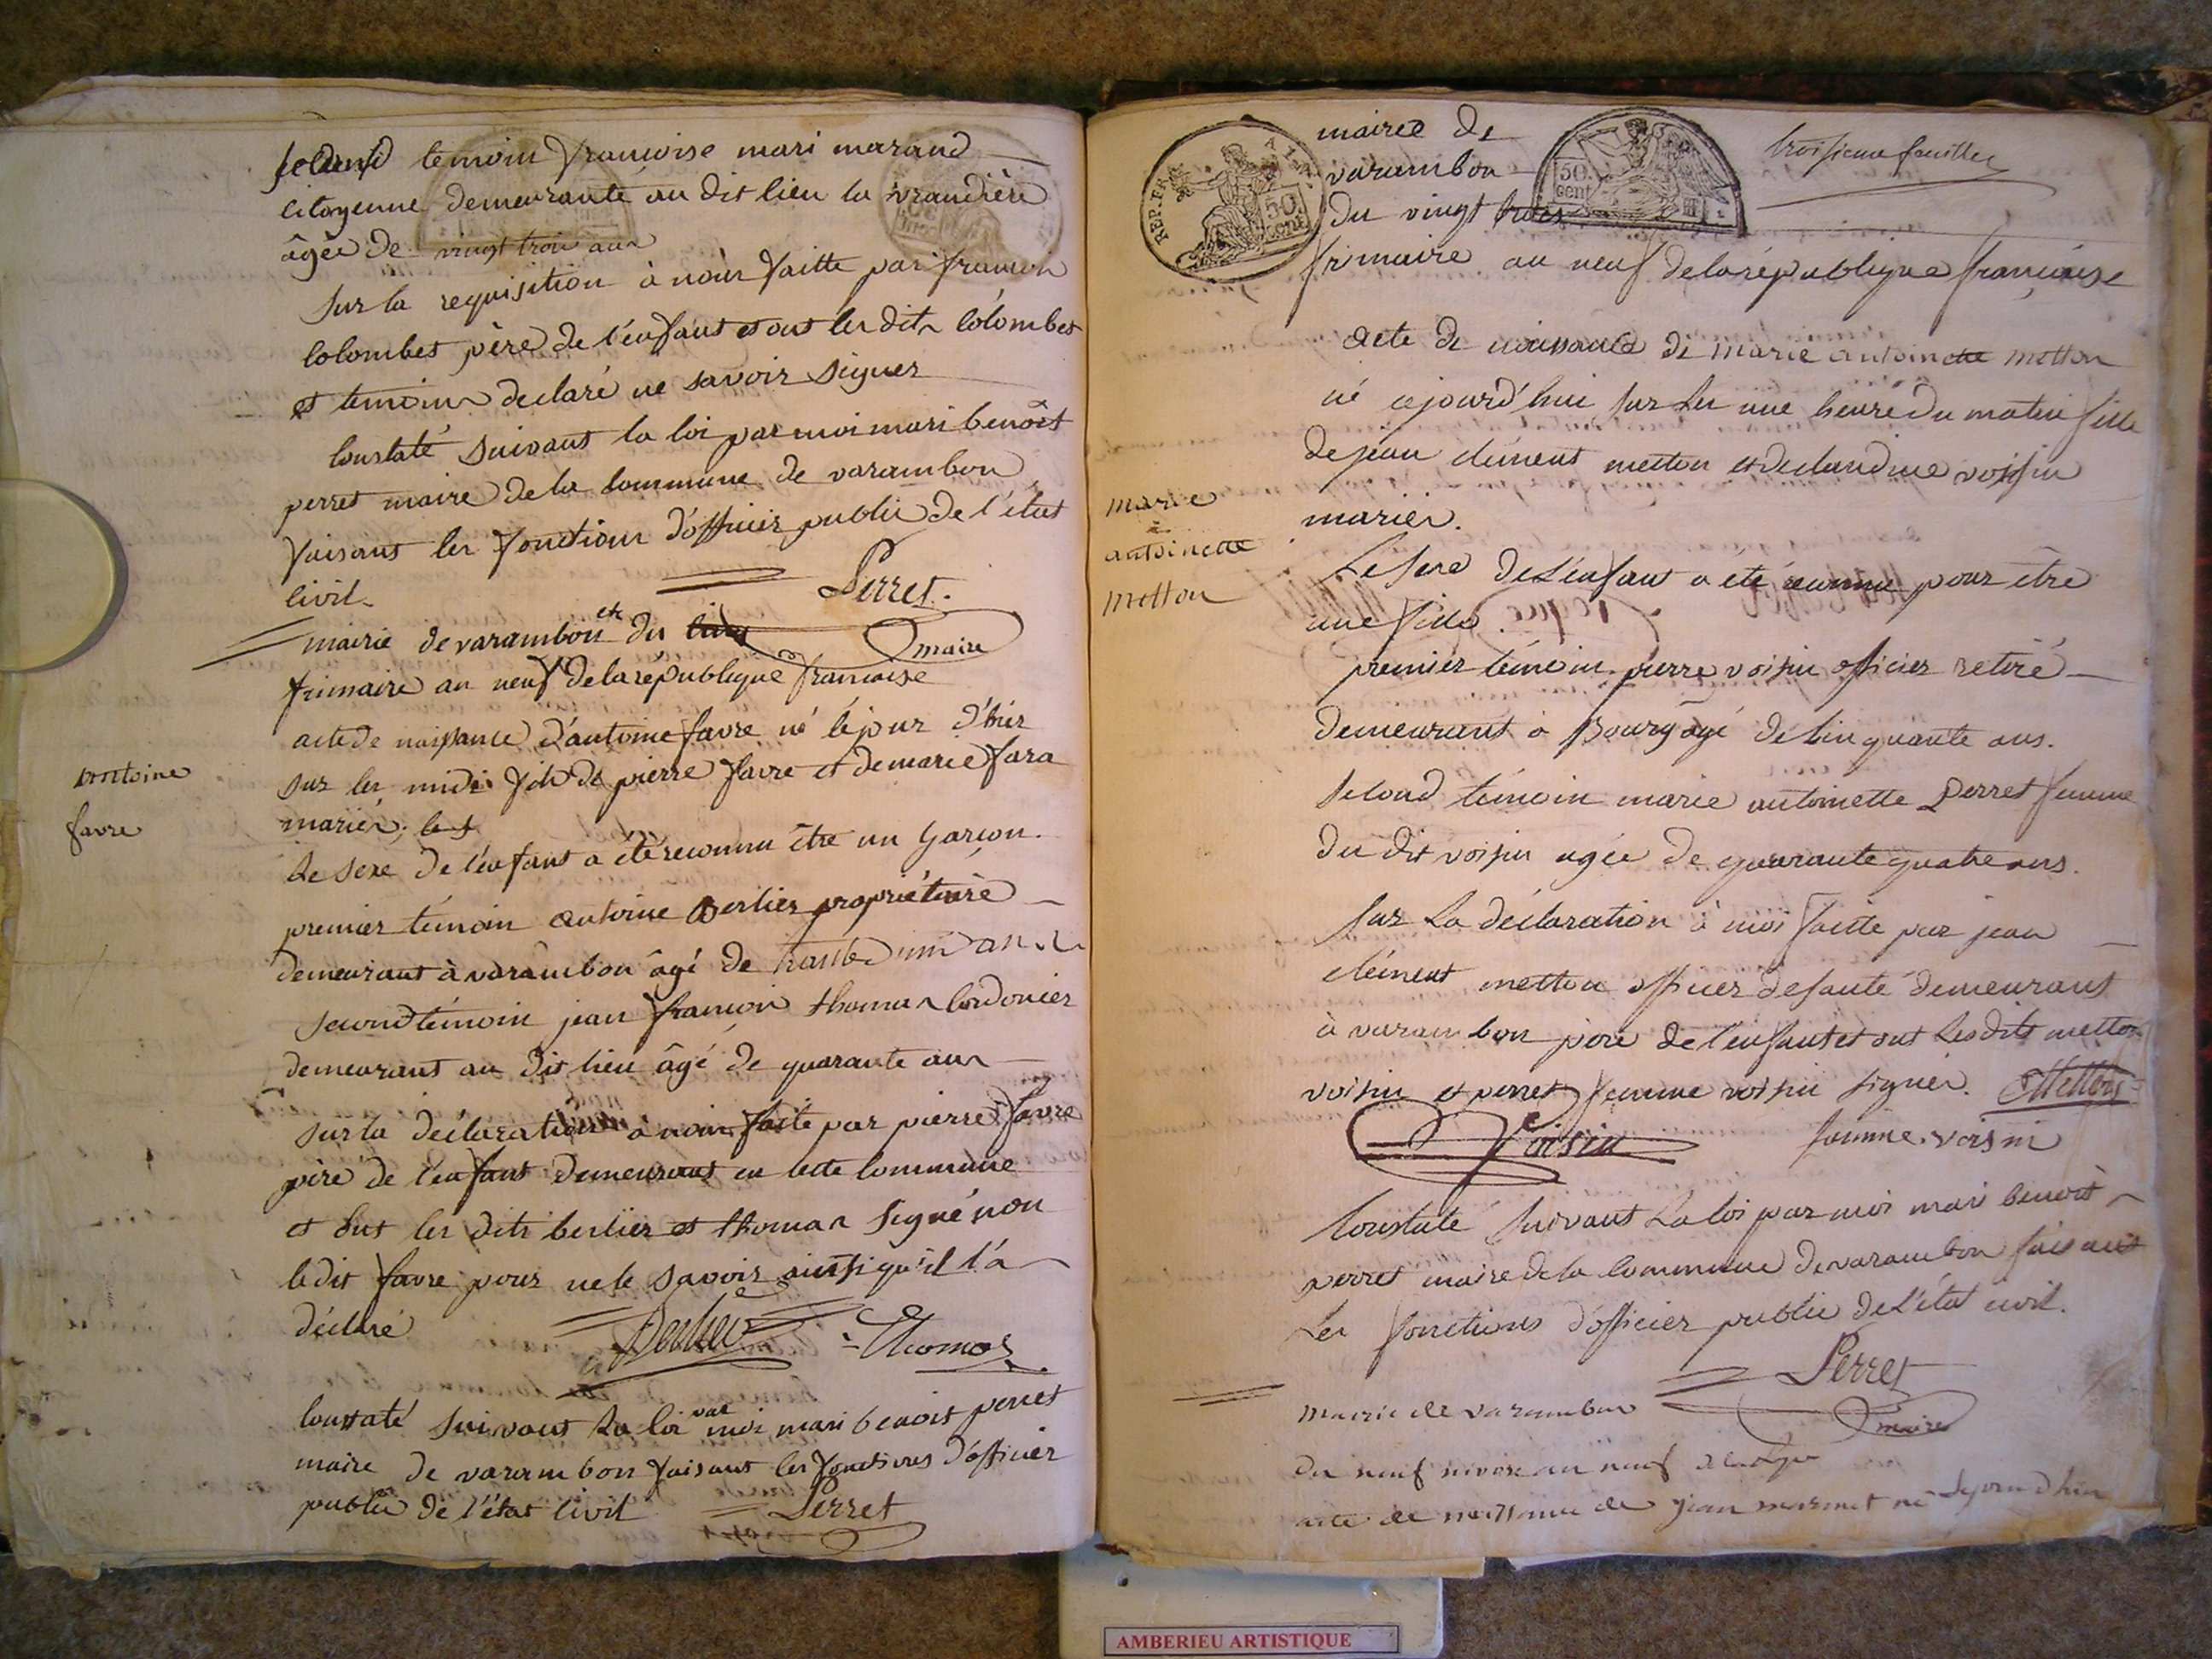 second temoin françoise mari marand
citoyenne demeurante au dit lieu la
âgée de vingt trois ans
sur la requisition à nous faitte par françois
colombet père de l'enfant et ont les dits colombet
et temoins declaré ne savoir signer
constaté suivant la loi par moi mari benoît
perret maire de la commune de varambon
faisant les fonctions d'officier public de l'état
civil. Perret
maire
mairie de varambon du
frimaire an neuf de la république francaise
acte de naissance d'antoine favre né le jour d'hier
sur les midi fils de pierre favre et de marie fara
mariés;
Le sexe de l'enfant a été reconnu être un garçon.
premier témoin antoine Berlier propriétaire
demeurant à varambon âgé de trente un ans
second témoin jean françois thomas cordonier
demeurant au dit lieu âgé de quarante ans
sur la déclaration à nous faite par pierre favre
père de l'enfant demeurant en cette commune
et ont les dits berlier et thomas signé non
le dit favre pour ne le savoir ainsi qu'il l'a
déclaré Berlier Thomas
constaté suivant La loi par moi mari benoit perret
maire de varambon faisant les fonctions d'officier
public de l'état civil Perret
antoine
favre
REP. FRA.
50 cent
50 cent
mairie de
varambon
troisieme feuillet
du vingt trois
frimaire an neuf de la république française
acte de naissance de marie antoinette metton
né cejourd'hui sur les une heure du matin fille
de jean clément metton et de claudine voisin
mariés.
Le sexe de L'enfant a été reconnu pour être
une fille.
premier témoin pierre voisin officier retiré
demeurant à Bourg âgé de cinquante ans.
second témoin marie antoinette Perret femme
du dit voisin agée de quarante quatre ans.
sur La déclaration à moi faitte par jean
clément metton officier de santé demeurant
à varambon père de l'enfant et ont Les dits metton
voisin et perret femme voisin signés. Metton
Voisin femme voisin
Constaté suivant La loi par moi mari benoit
perret maire de la commune de varambon faisant
Les fonctions d'officier public de L'état civil.
Perret
maire
mairie de varambon
du neuf nivose an neuf
acte de naissance de jean né
marie
antoinette
metton
AMBERIEU ARTISTIQUE